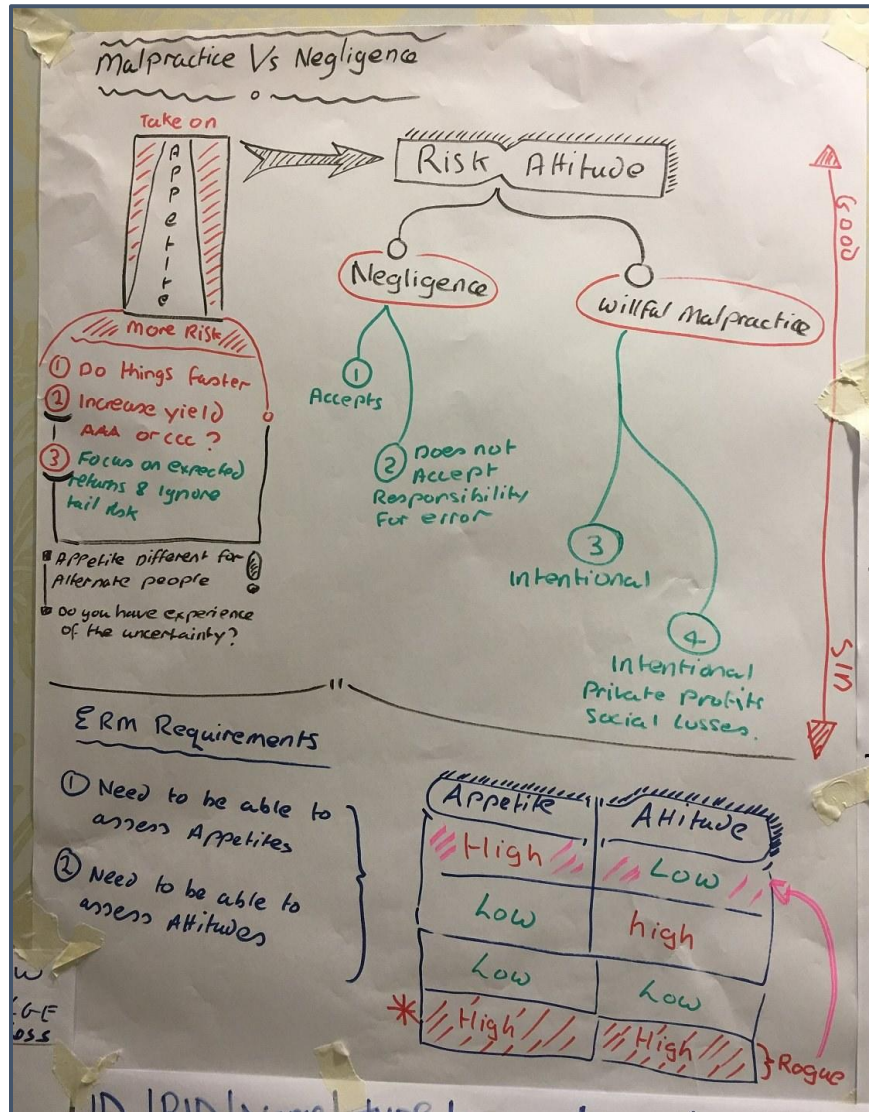 Malpractice Vs Negligence
Take on
APPETITE
More Risk
① Do things faster
② Increase yield
AAA or CCC ?
③ Focus on expected
returns & Ignore
tail risk
Appetite Different for
Alternate people
Do you have experience
of the uncertainty?
Risk Attitude
Negligence
① Accepts
② Does not
Accept
Responsibility
For error
Willful Malpractice
③
Intentional
④
Intentional
Private Profits
Social Losses.
GOOD
SIN
ERM Requirements
① Need to be able to
assess Appetites
② Need to be able to
assess Attitudes
Appetite Attitude
High Low
Low high
Low Low
* High High } Rogue